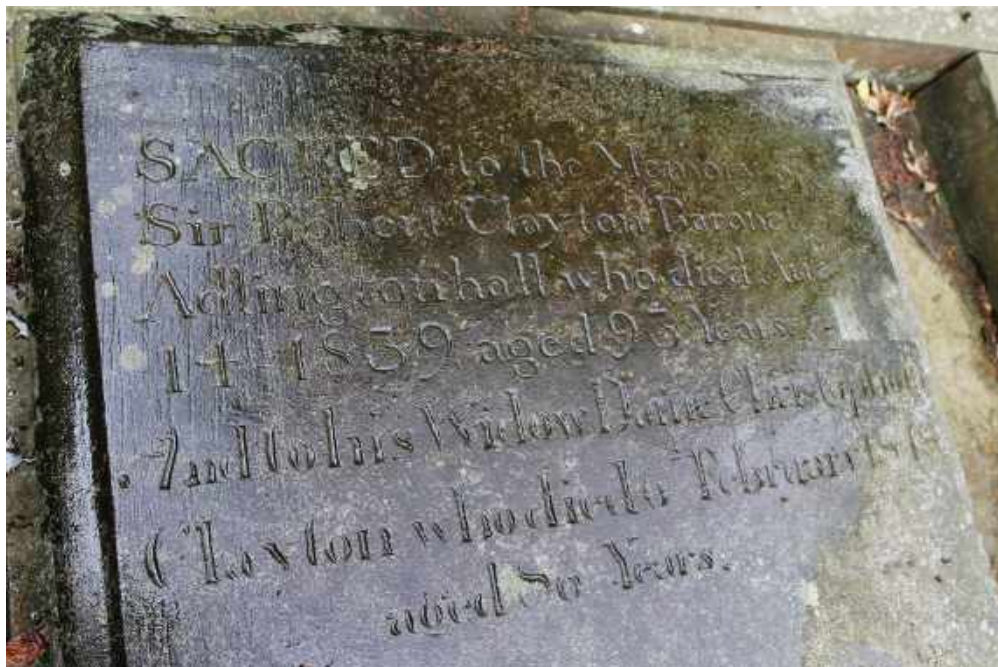 SACRED to the Memory of
Sir Robert Clayton Baronet
Adlington hall who died Aug
14 1839 aged 93 Years
And to his Widow Dame
Clayton who died February
aged Years.